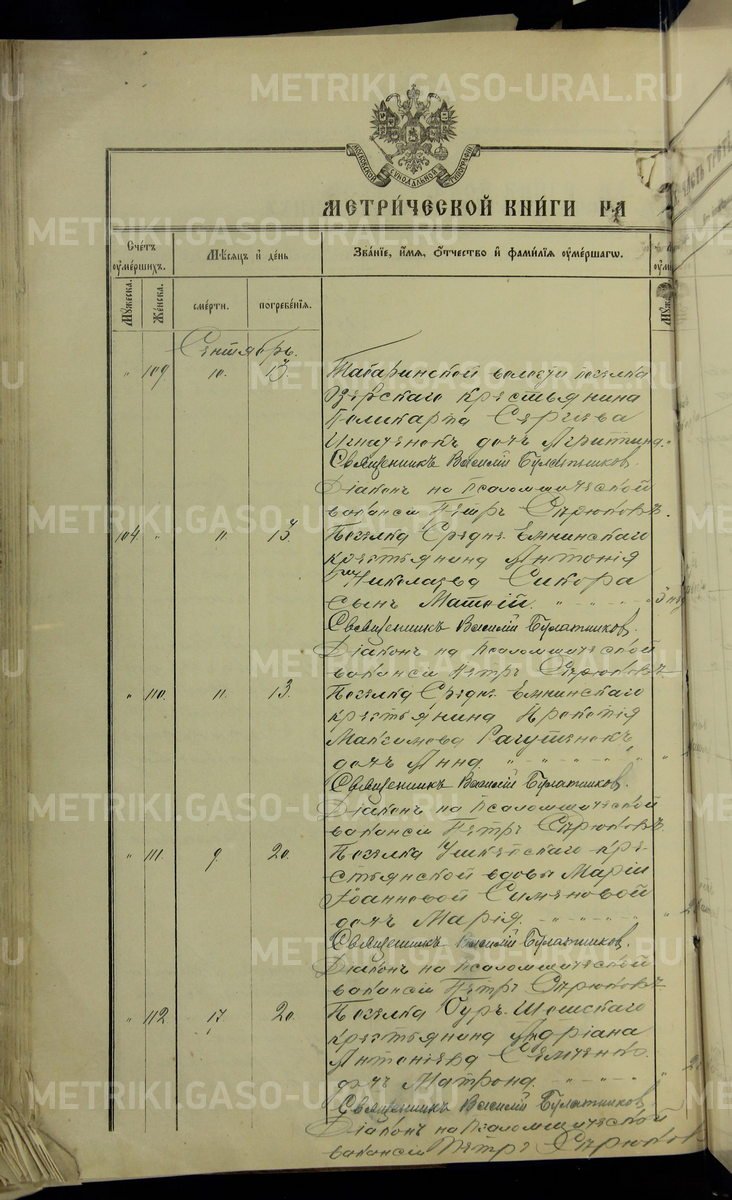 METRIKI.GASO-URAL.RU
МОСКОВСКОЙ СѴНОДАЛЬНОЙ ТИПОГРАФІИ
МЕТРИ́ЧЕСКОЙ КНИ́ГИ НА
Сче́тъ ᲂу҆ме́ршихъ.
Мѣ́сяцъ и҆ де́нь
Зва́нїе, и҆́мѧ, ѻ҆́тчество и҆ фами́лїѧ ᲂу҆ме́ршагѡ.
Мꙋ́жеска.
Же́нска.
сме́рти.
погребе́нїѧ.
Сентябрь.
" 109 10. 13. Табаринской волости поселка
Озерскаго крестьянина
Поликарпа Сергѣева
Игнатенокъ дочь Агриппина.
Священникъ Василій Булатников.
Діаконъ на псаломщической
вакансіи Петръ Сѣрюковъ.
104 " 11. 13. Поселка Средне-Емнинскаго
крестьянина Антонія
Николаева Сикора
сынъ Матѳій.
Священникъ Василій Булатников.
Діаконъ на псаломщической
вакансіи Петръ Сѣрюковъ
" 110. 11. 13. Поселка Средне-Емнинскаго
крестьянина Прокопія
Максимова
дочь Анна.
Священникъ Василій Булатников.
Діаконъ на псаломщической
вакансіи Петръ Сѣрюковъ.
" 111. 9. 20. Поселка кре-
стьянской вдовы Маріи
Іоанновой Симоновой
дочь Марія.
Священникъ Василій Булатников.
Діаконъ на псаломщической
вакансіи Петръ Сѣрюковъ.
" 112 17 20 Поселка
крестьянина Андріана
Антоніева Семченко.
дочь Матрона.
Священникъ Василій Булатников
Діаконъ на псаломщической
вакансіи Петръ Сѣрюков